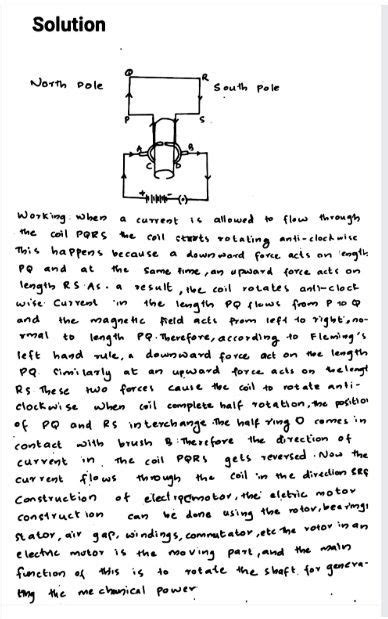 Solution
North Pole
South Pole
Q
R
P
S
A
B
C
D
+
Working. when a current is allowed to flow through
the coil PQRS the coil starts rotating anti-clockwise
This happens because a downward force acts on length
PQ and at the same time, an upward force acts on
length RS. As. a result, the coil rotates anti-clock
wise. Current in the length PQ flows from P to Q
and the magnetic field acts from left to right, no-
rmal to length PQ. Therefore, according to Fleming's
left hand rule, a downward force act on the length
PQ. Similarly at an upward force acts on
RS These two forces cause the coil to rotate anti-
clockwise when coil complete half rotation, the position
of PQ and RS interchange. The half ring D comes in
contact with brush B. Therefore the direction of
current in the coil PQRS gets reversed. Now the
current flows through the coil in the direction
Construction of the eletric motor
construction can be done using the rotor, bearings
stator, air gap, windings, commutator, etc the rotor in an
electric motor is the moving part, and the main
function of this is to rotate the shaft for genera-
ting the mechanical power